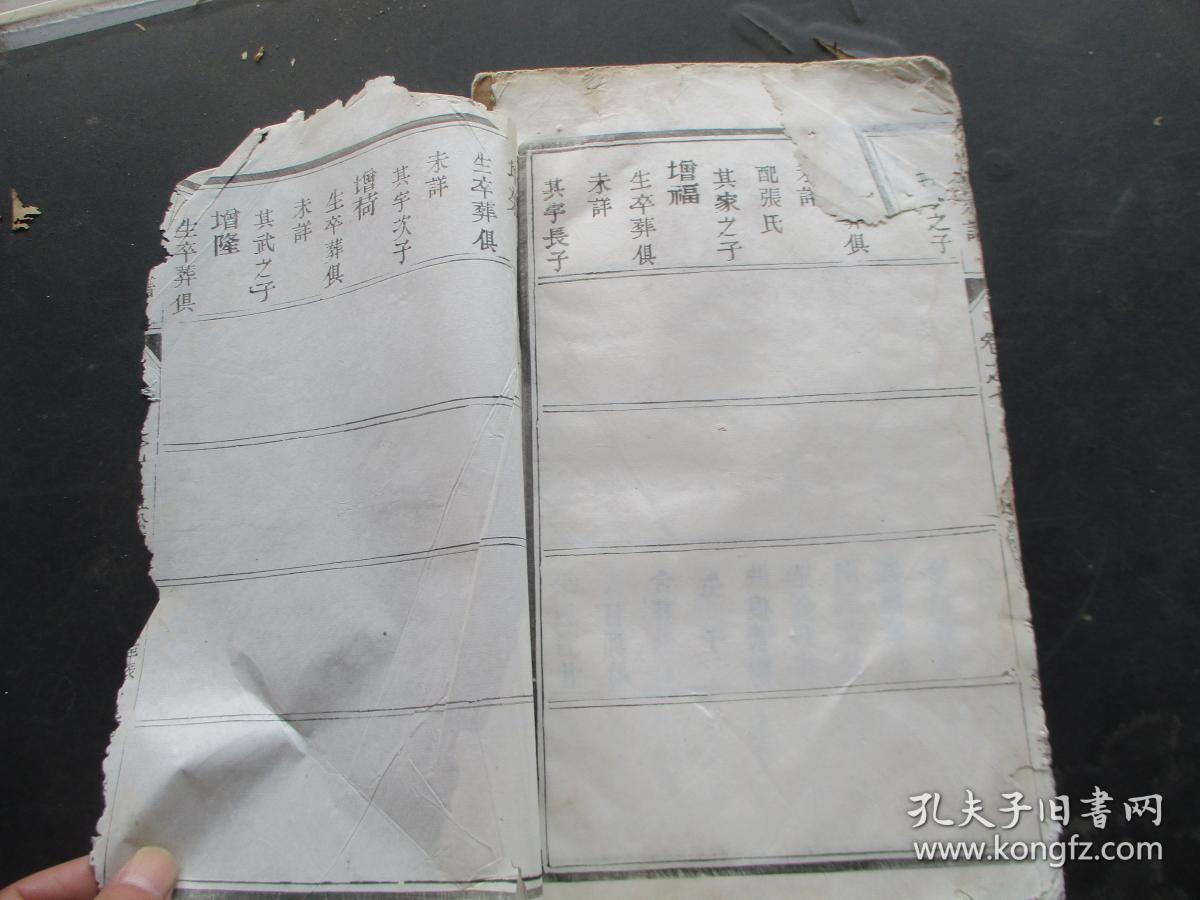 之子
俱
詳
配張氏
其家之子
增福
生卒葬俱
未詳
其宇長子
生卒葬俱
未詳
其宇次子
增荷
生卒葬俱
未詳
其武之子
增隆
生卒葬俱
孔夫子旧書网
www.kongfz.com